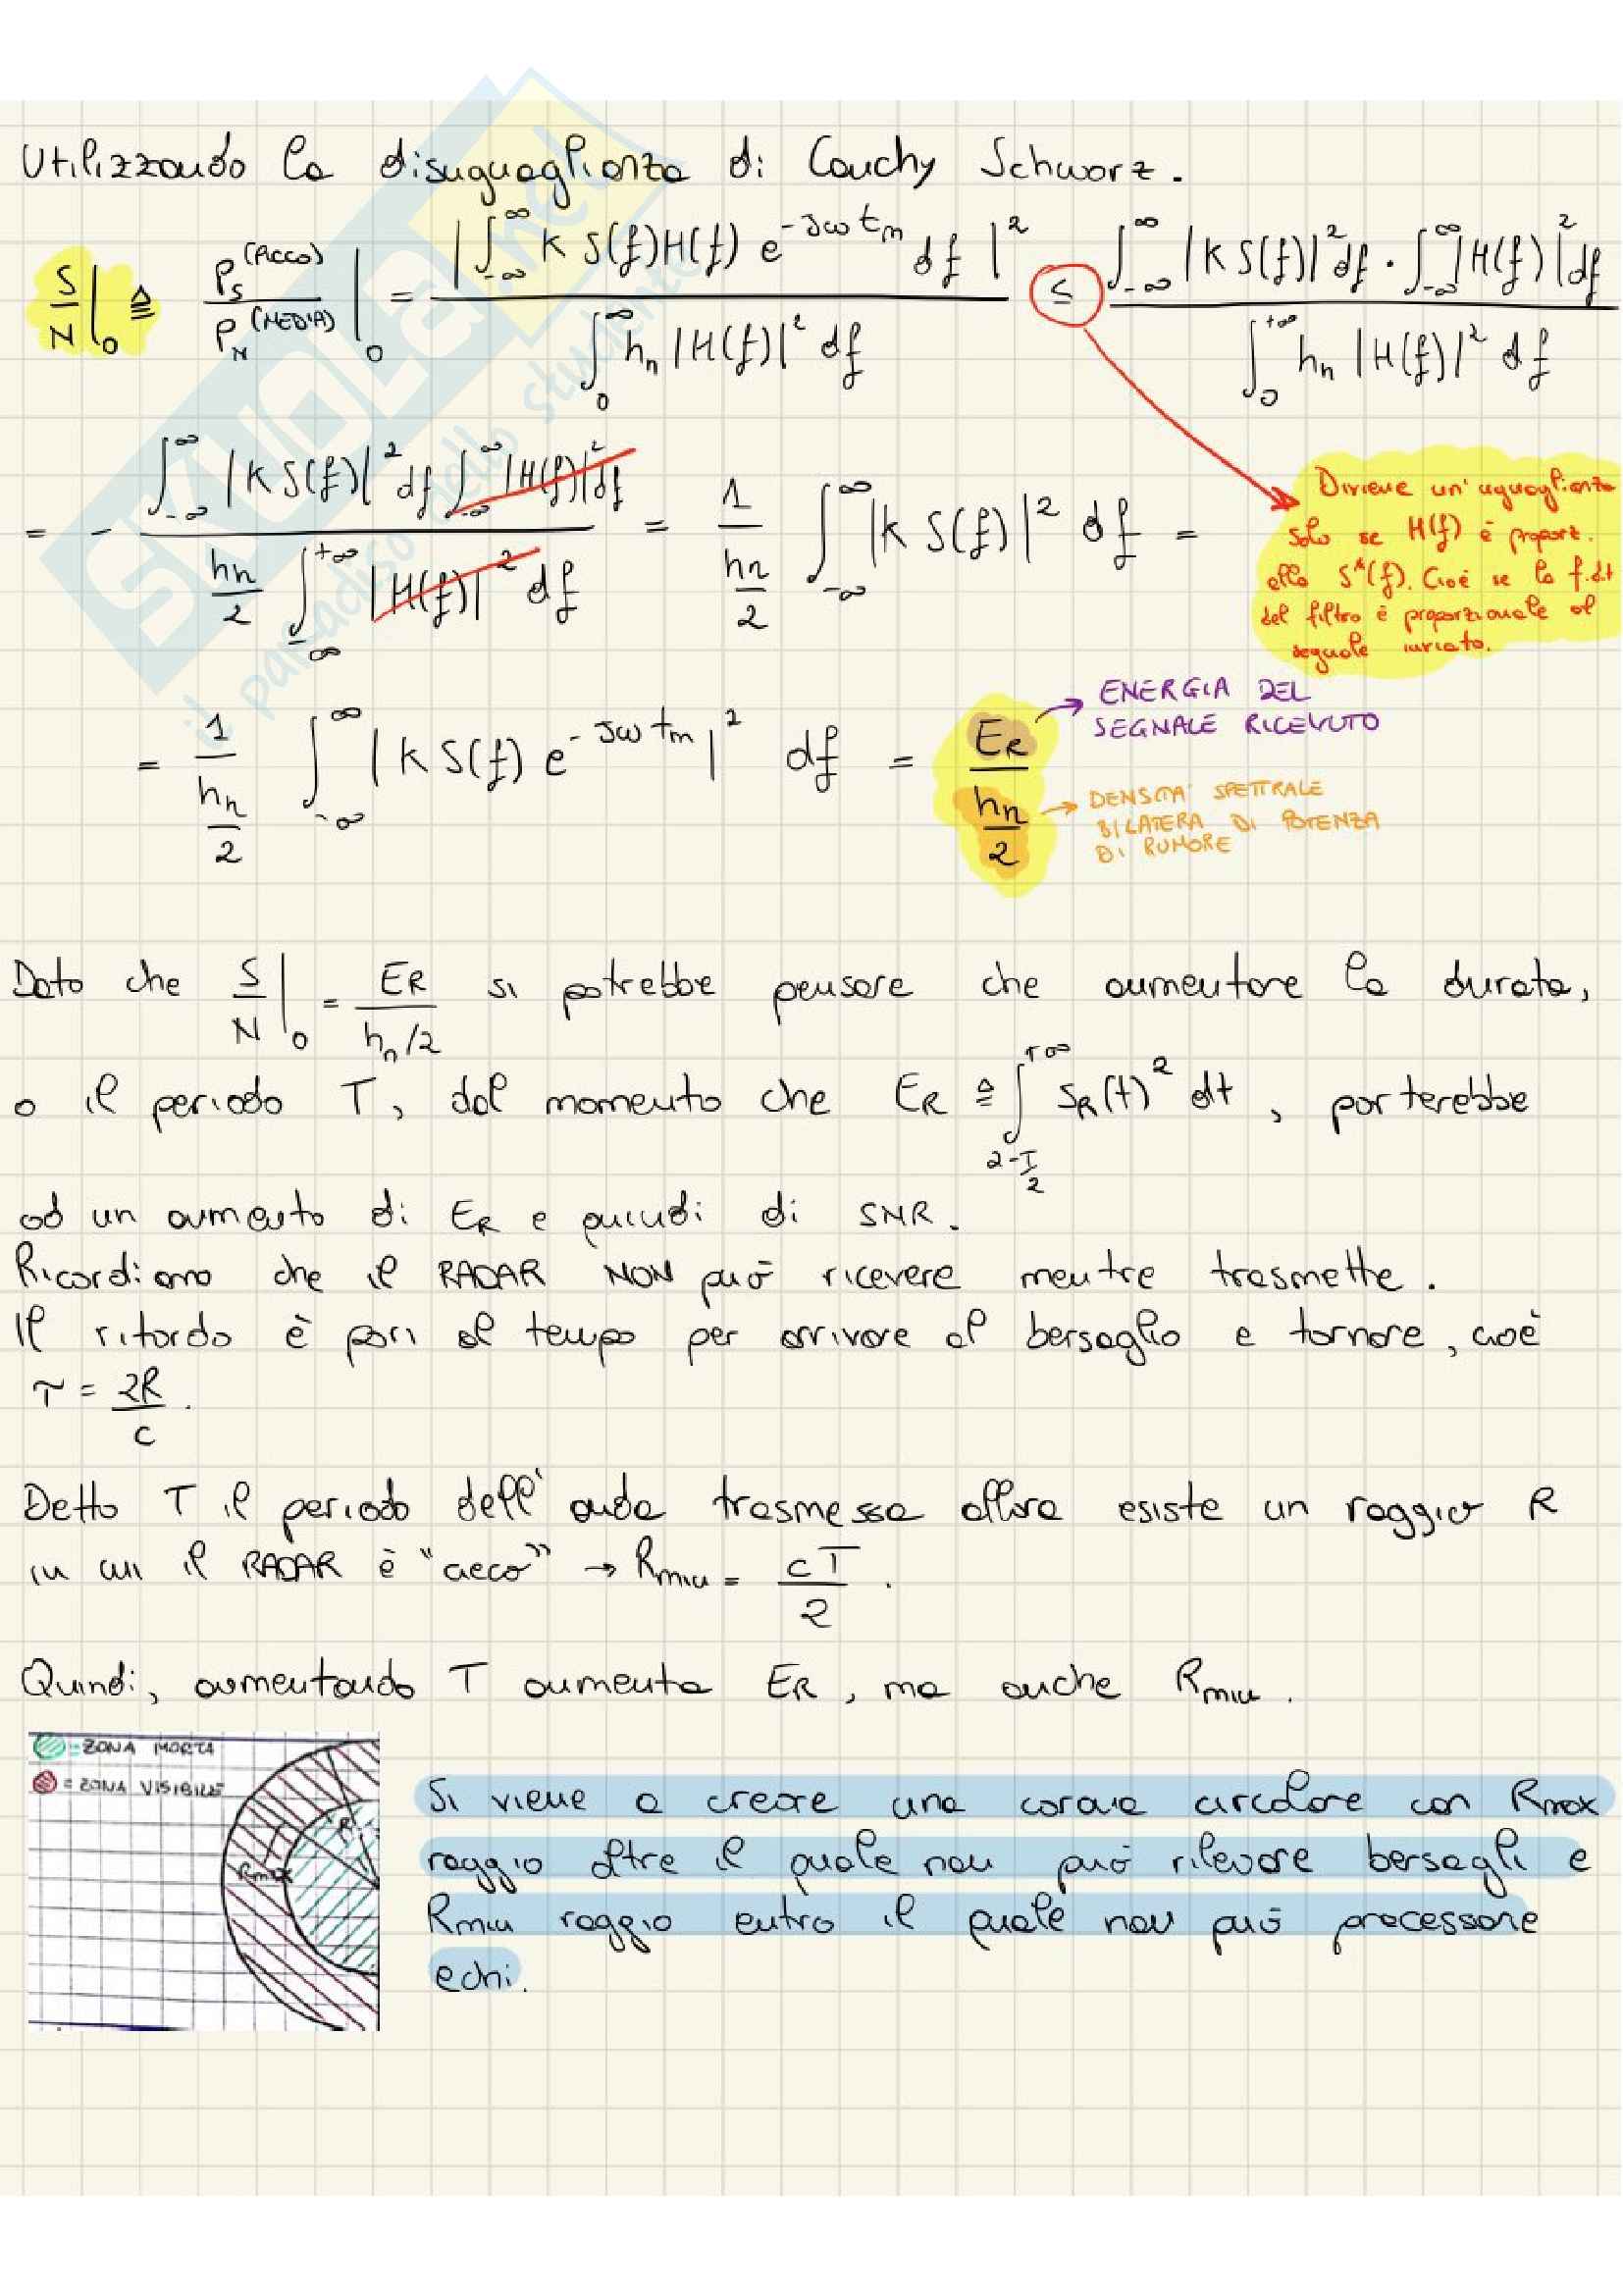 Utilizzando la disuguaglianza di Cauchy Schwarz.
S/N|₀ ≜ P_S^(PICCO) / P_N^(MEDIA) |₀ = |∫_{-∞}^{∞} K S(f)H(f) e^{-jω t_m} df|² / ∫_0^∞ h_n |H(f)|² df ≤ ∫_{-∞}^{∞} |K S(f)|² df · ∫_{-∞}^{∞} |H(f)|² df / ∫_0^{+∞} h_n |H(f)|² df
= - ∫_{-∞}^{∞} |K S(f)|² df ∫_{-∞}^{∞} |H(f)|² df / h_n/2 ∫_{-∞}^{+∞} |H(f)|² df = 1/(h_n/2) ∫_{-∞}^{∞} |K S(f)|² df =
Diviene un'uguaglianza
solo se H(f) è proport.
alla S*(f). Cioè se la f.d.t
del filtro è proporzionale al
segnale inviato.
= 1/(h_n/2) ∫_{-∞}^{∞} |K S(f) e^{-jω t_m}|² df = E_R/(h_n/2)
ENERGIA DEL
SEGNALE RICEVUTO
DENSITA' SPETTRALE
BILATERA DI POTENZA
DI RUMORE
Dato che S/N|₀ = E_R/(h_n/2) si potrebbe pensare che aumentare la durata,
o il periodo T, dal momento che E_R ≜ ∫_{2-T/2}^{+∞} s_R(t)² dt, porterebbe
ad un aumento di E_R e quindi di SNR.
Ricordiamo che il RADAR NON può ricevere mentre trasmette.
Il ritardo è pari al tempo per arrivare al bersaglio e tornare, cioè
τ = 2R/c.
Detto T il periodo dell'onda trasmessa allora esiste un raggio R
in cui il RADAR è "cieco" → R_min = cT/2.
Quindi, aumentando T aumenta E_R, ma anche R_min.
= ZONA MORTA
= ZONA VISIBILE
R
Rmax
Si viene a creare una corona circolare con Rmax
raggio oltre il quale non può rilevare bersagli e
Rmin raggio entro il quale non può processare
echi.
SKUOLA.net
il paradiso dello studente